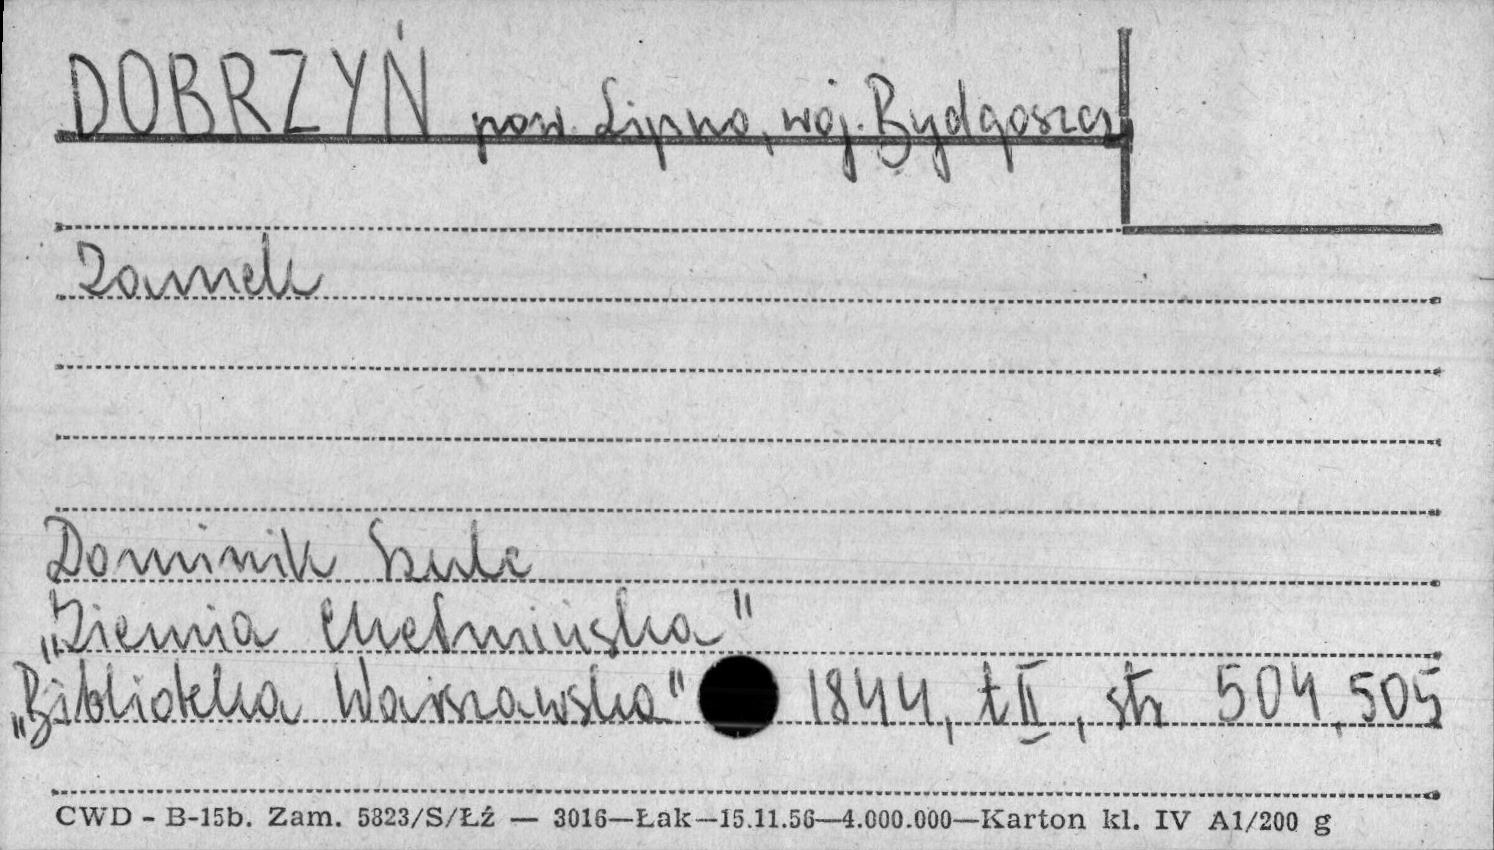 DOBRZYŃ pow. Lipno, woj. Bydgoszcz
Zamek
Dominik Szulc
„Ziemia Chełmińska"
„Biblioteka Warszawska" 1844, t II, str 504, 505
CWD - B-15b. Zam. 5823/S/Łź — 3016—Łak—15.11.56—4.000.000—Karton kl. IV A1/200 g